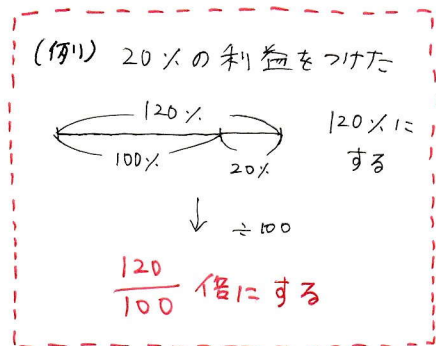 (例1) 20%の利益をつけた
120%
100%
20%
120%に
する
↓ ÷100
120/100 倍にする